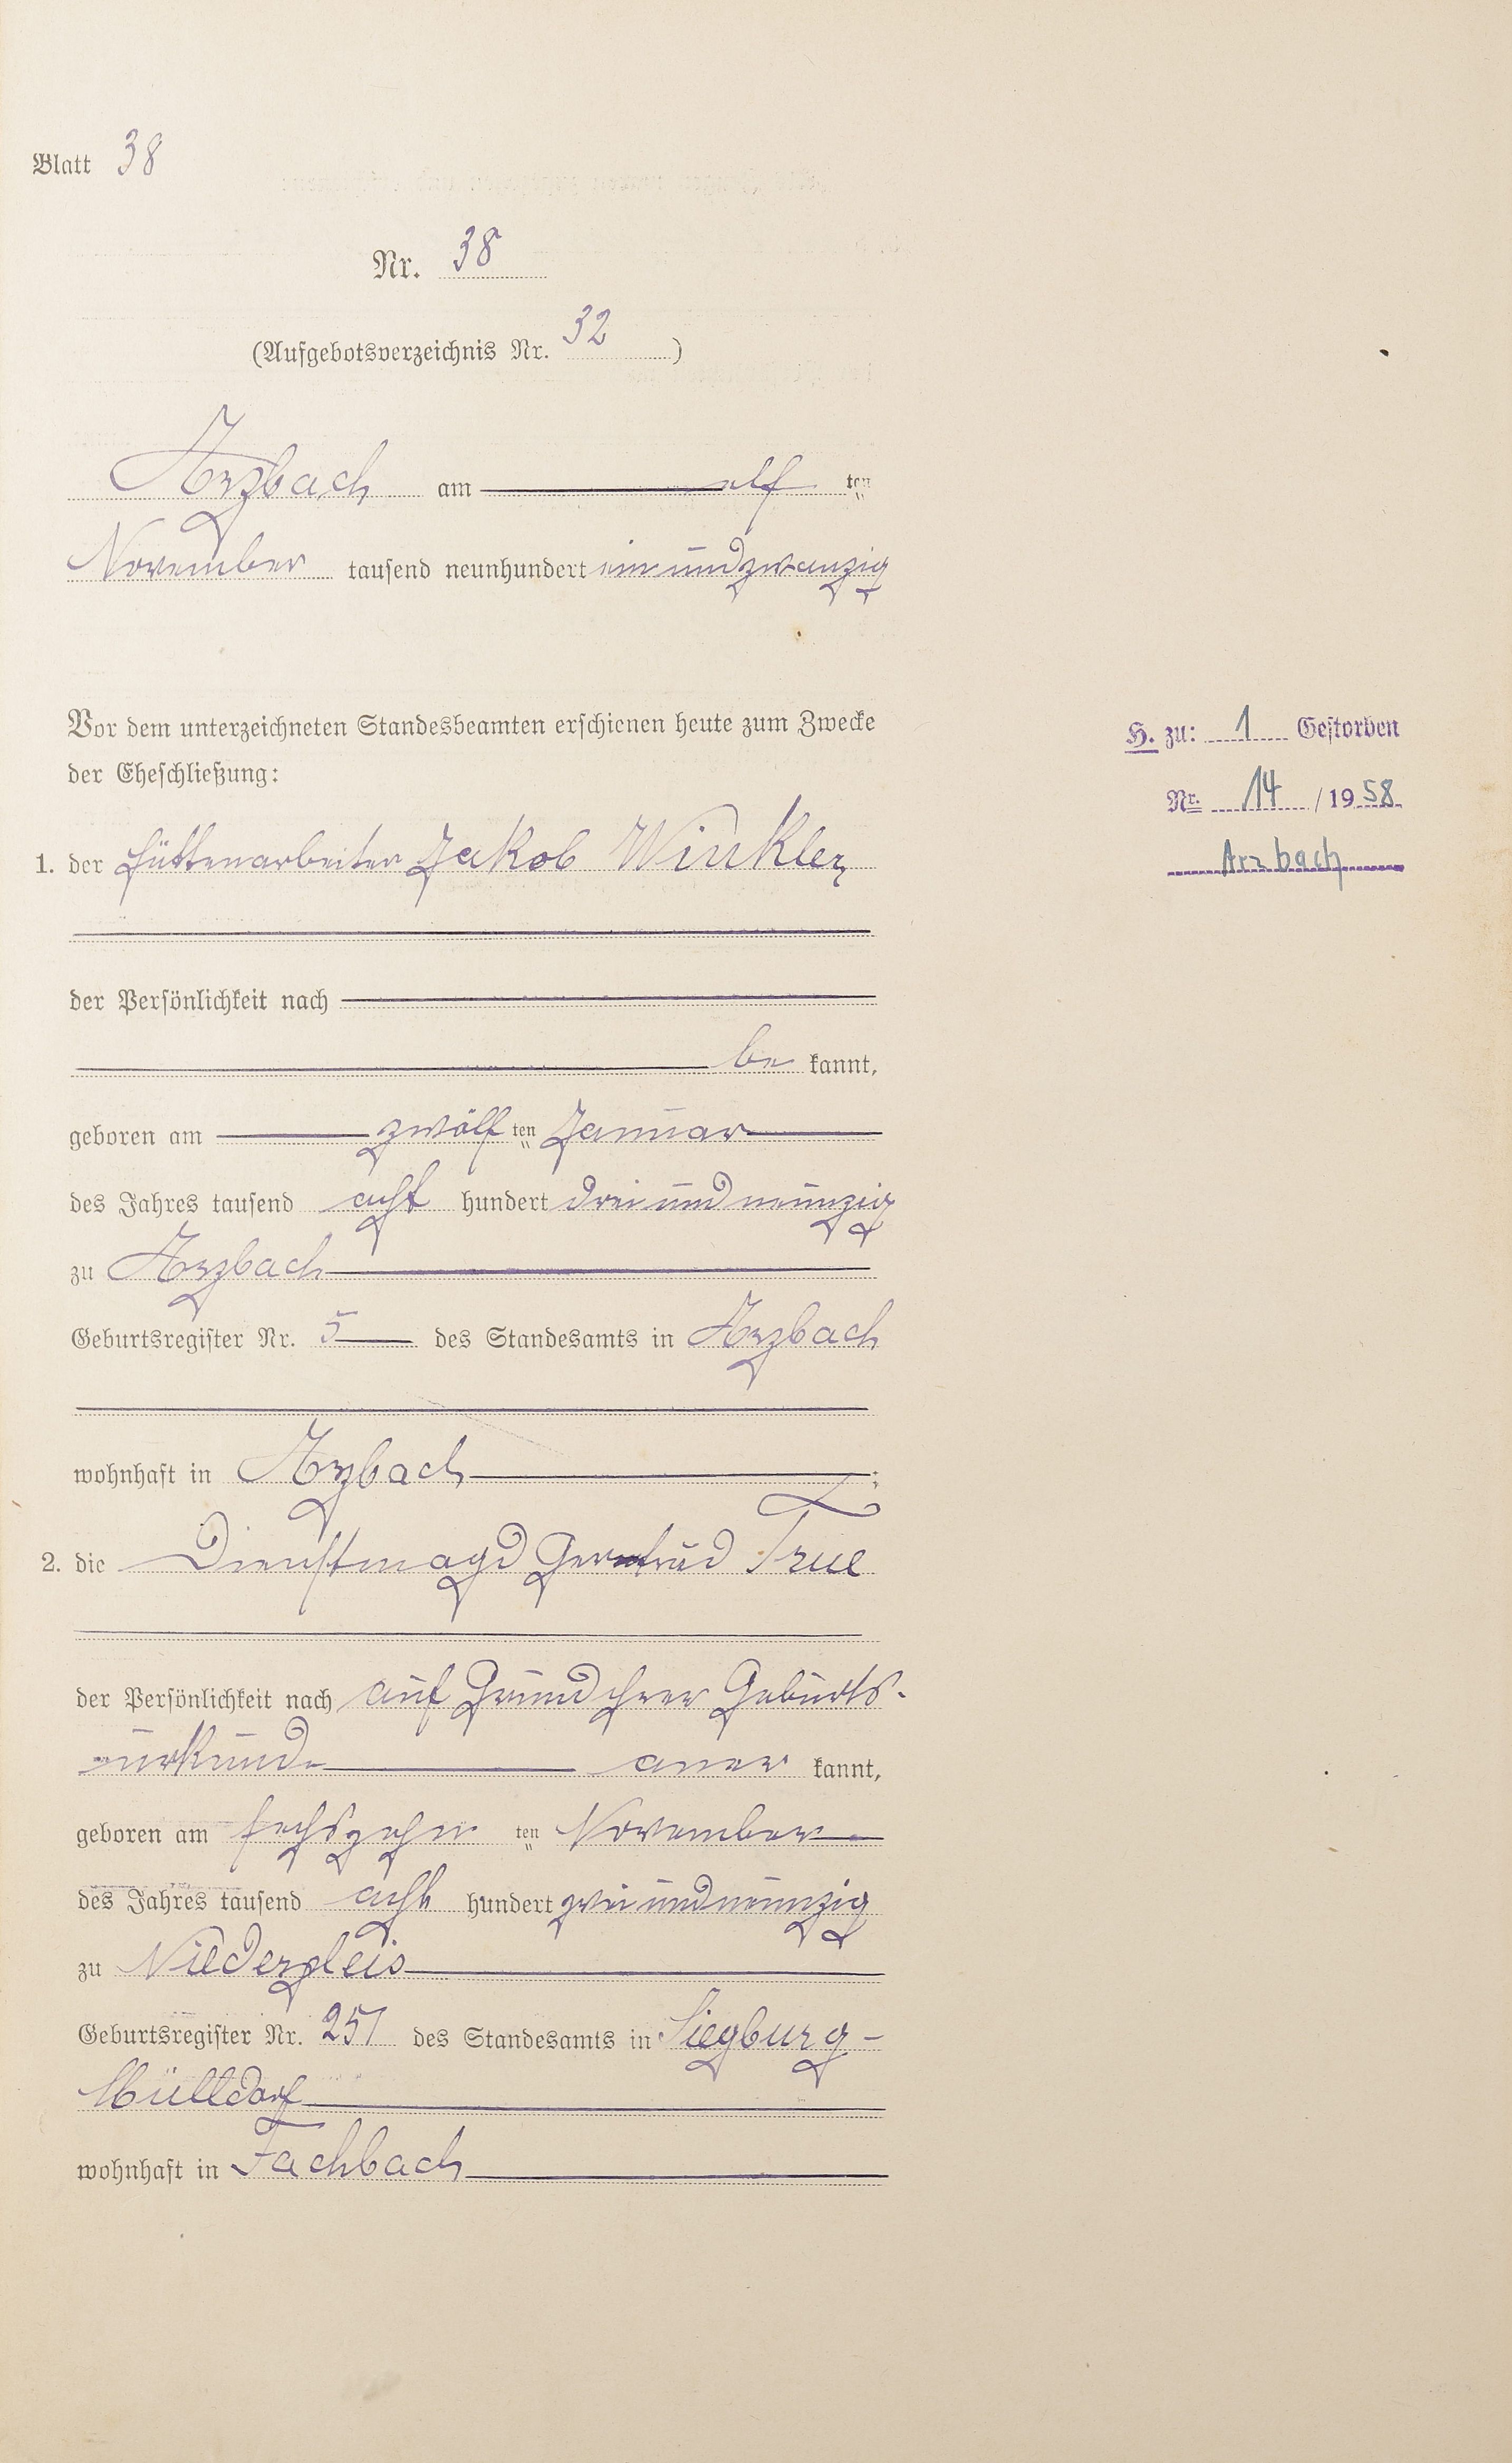 Blatt 38
Nr. 38
(Aufgebotsverzeichnis Nr. 32)
Arzbach am elf ten
November tausend neunhundert ein und zwanzig
Vor dem unterzeichneten Standesbeamten erschienen heute zum Zwecke
der Eheschließung:
1. der Hüttenarbeiter Jakob Winkler
der Persönlichkeit nach
be kannt,
geboren am zwölf ten Januar
des Jahres tausend acht hundert drei und neunzig
zu Arzbach
Geburtsregister Nr. 5 des Standesamts in Arzbach
wohnhaft in Arzbach ;
2. die Dienstmagd Gertrud True
der Persönlichkeit nach auf Grund ihrer Geburts-
urkunde aner kannt,
geboren am sechszehn ten November
des Jahres tausend acht hundert zwei und neunzig
zu Niederpleis
Geburtsregister Nr. 251 des Standesamts in Siegburg-
Mülldorf
wohnhaft in Fachbach
H. zu: 1 Gestorben
Nr. 14 / 19 58
Arzbach